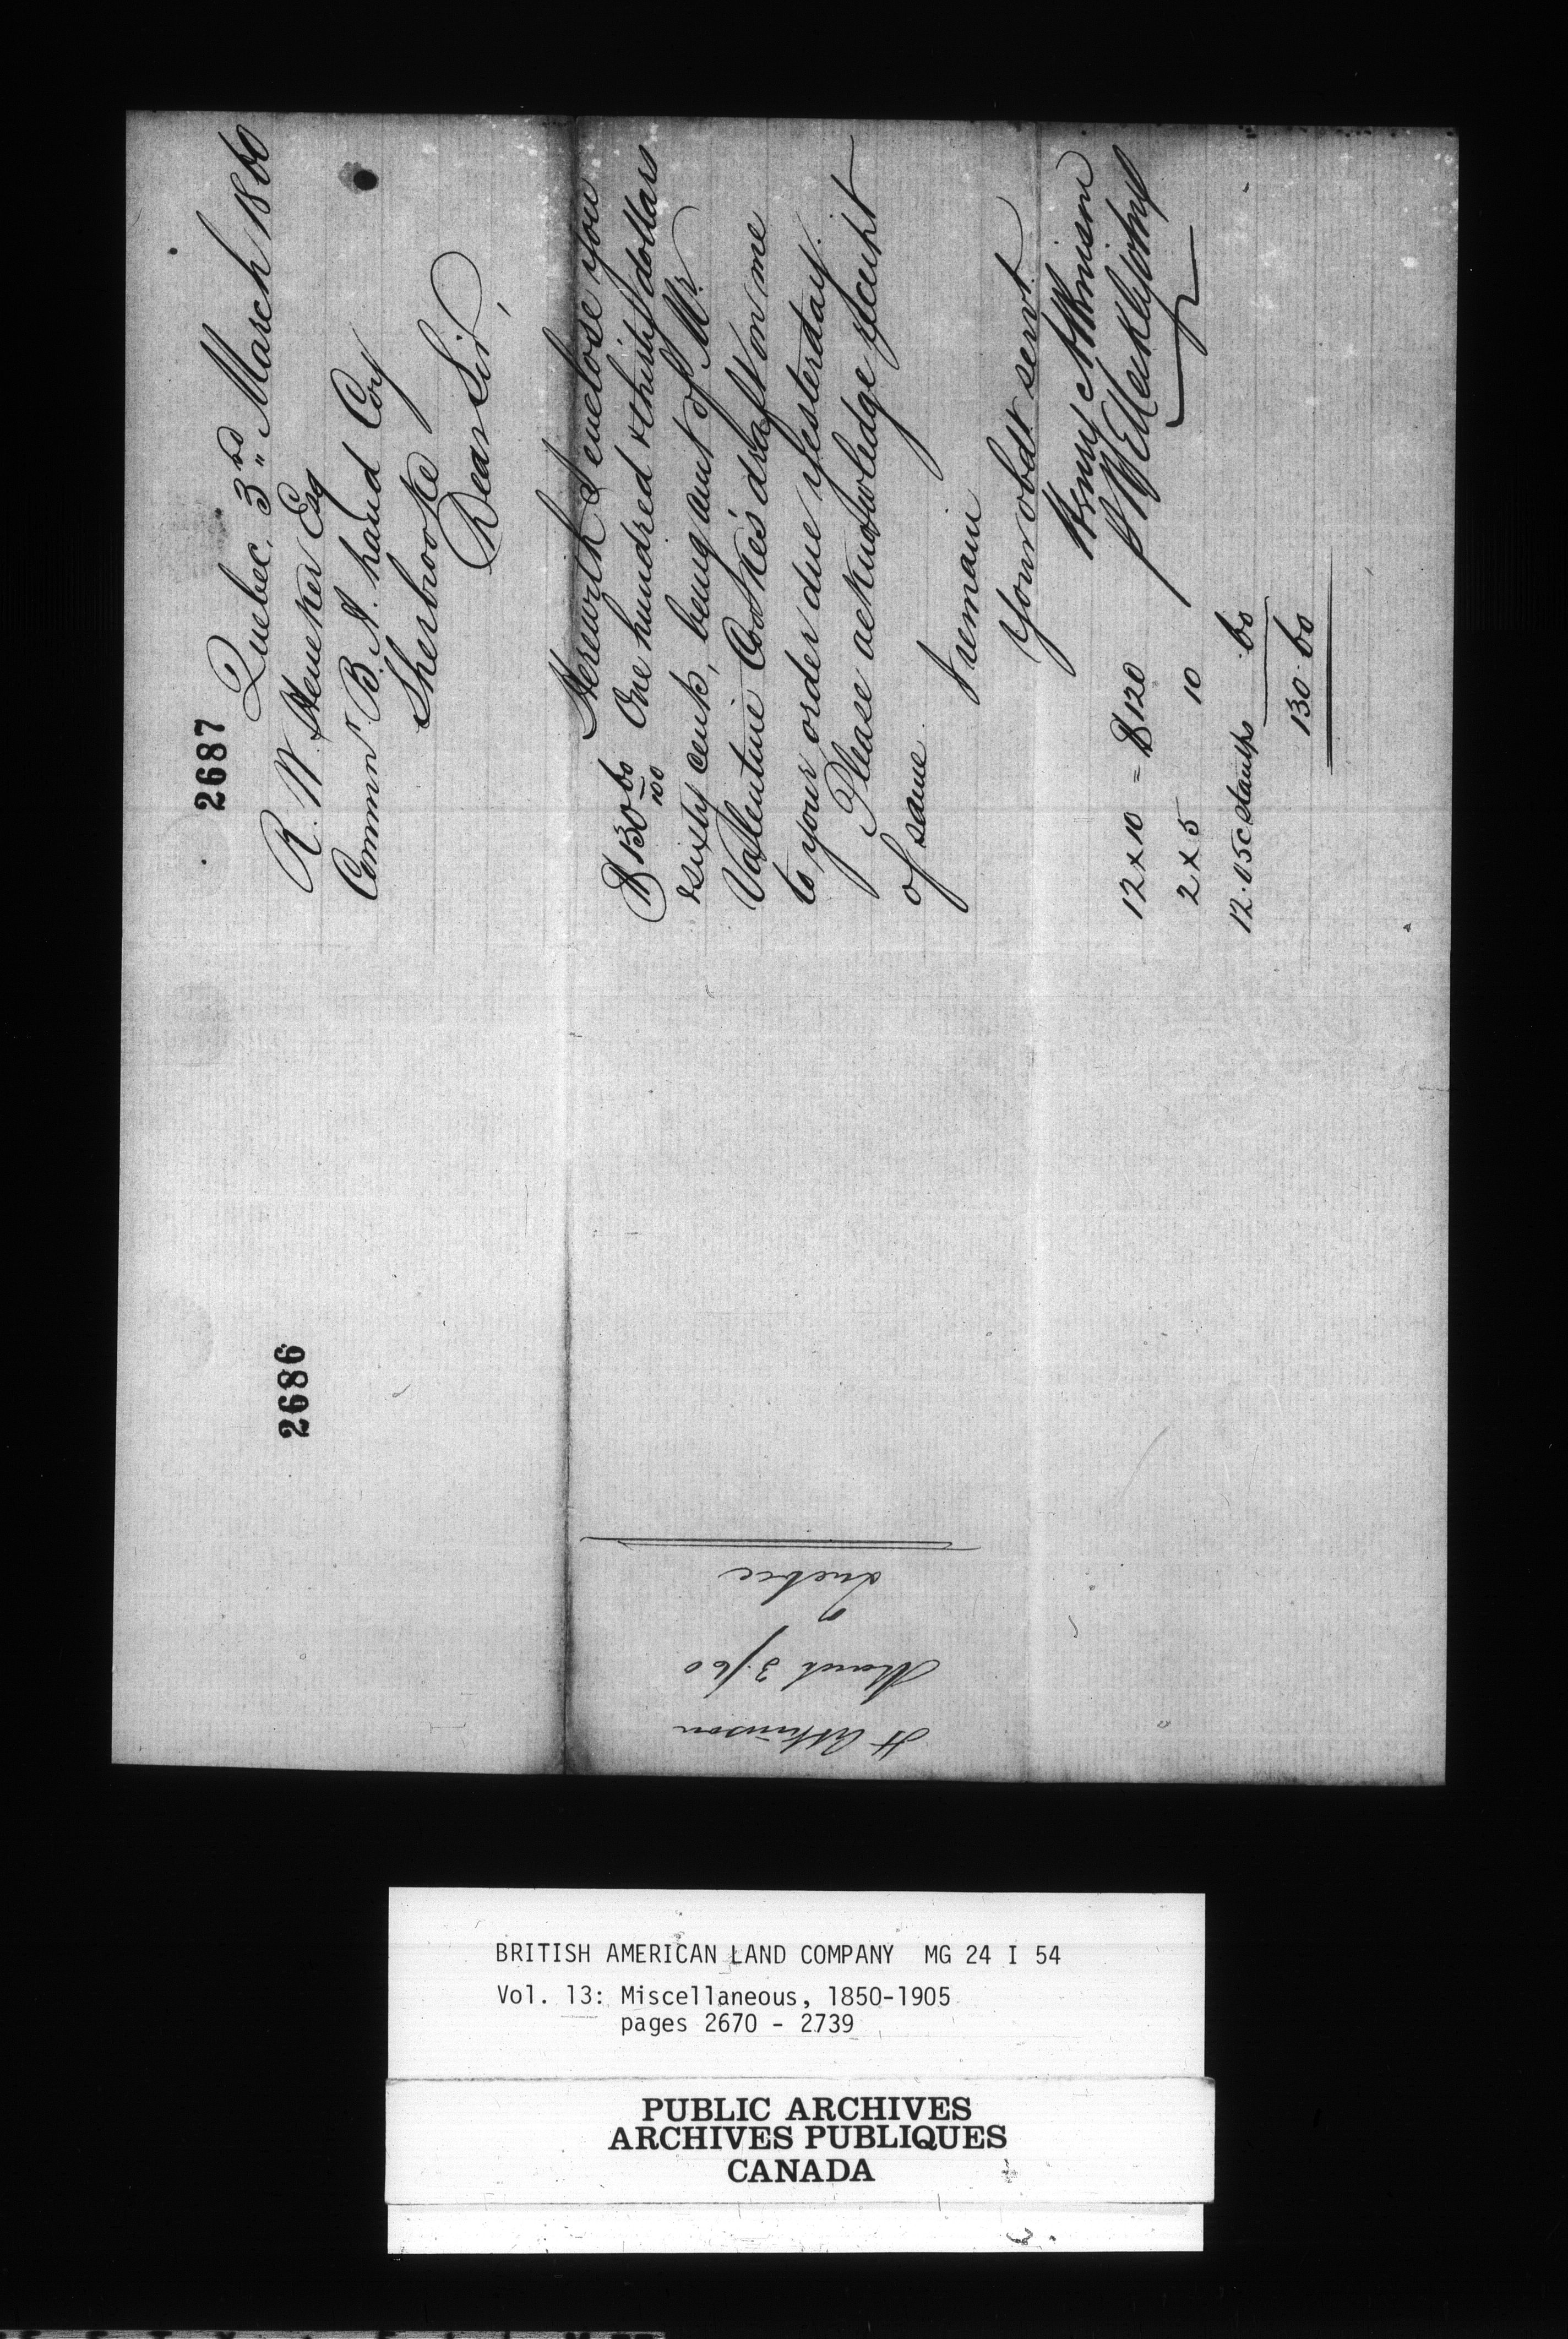 2687
Quebec, 3rd March 1860
R. W. Heneker Esq
Commr B. A. Land Coy
Sherbrooke
Dear Sir,
Herewith I enclose you
$130 60/100 One hundred & thirty dollars
& sixty cents, being amt of Mr.
Vallentine Cooke's draft on me
to your order due yesterday.
Please acknowledge receipt
of same
I remain
Your obdt servt.
Henry Atkinson
12 x 10 = $120
2 x 5 10
12. 05c stamps .60
130.60
2686
H Atkinson
March 3/60
Quebec
BRITISH AMERICAN LAND COMPANY MG 24 I 54
Vol. 13: Miscellaneous, 1850-1905
pages 2670 - 2739
PUBLIC ARCHIVES
ARCHIVES PUBLIQUES
CANADA